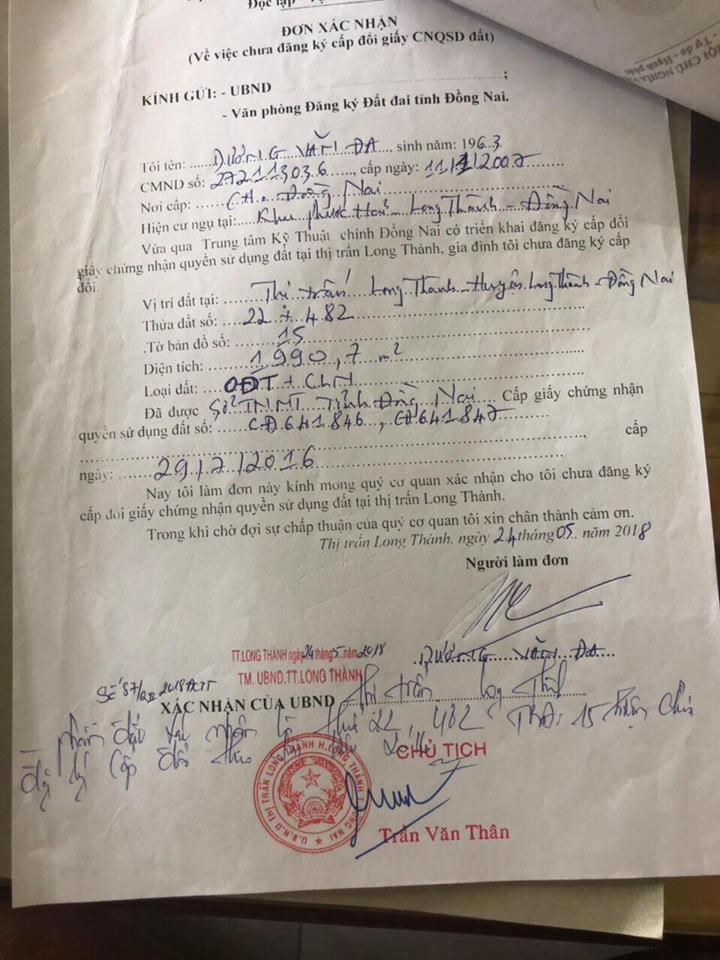 Độc lập - Tự
ĐƠN XÁC NHẬN
(Về việc chưa đăng ký cấp đổi giấy CNQSD đất)
KÍNH GỬI: - UBND ;
- Văn phòng Đăng ký Đất đai tỉnh Đồng Nai.
Tôi tên: DƯƠNG VĂN ĐA, sinh năm: 1963
CMND số: 272113036, cấp ngày: 11/1/2007
Nơi cấp: CA. Đồng Nai
Hiện cư ngụ tại: Khu Phước Hải - Long Thành - Đồng Nai
Vừa qua Trung tâm Kỹ Thuật chính Đồng Nai có triển khai đăng ký cấp đổi
giấy chứng nhận quyền sử dụng đất tại thị trấn Long Thành, gia đình tôi chưa đăng ký cấp
đổi.
Vị trí đất tại: Thị trấn Long Thành - Huyện Long Thành - Đồng Nai
Thửa đất số: 22 + 482
Tờ bản đồ số: 15
Diện tích: 1990,7 m²
Loại đất: ODT + CLN
Đã được Sở TNMT Tỉnh Đồng Nai Cấp giấy chứng nhận
quyền sử dụng đất số: CĐ641846, CĐ641847
, cấp
ngày: 29/7/2016
Nay tôi làm đơn này kính mong quý cơ quan xác nhận cho tôi chưa đăng ký
cấp đổi giấy chứng nhận quyền sử dụng đất tại thị trấn Long Thành.
Trong khi chờ đợi sự chấp thuận của quý cơ quan tôi xin chân thành cảm ơn.
Thị trấn Long Thành, ngày 24 tháng 05 năm 2018
Người làm đơn
DƯƠNG VĂN ĐA
TT.LONG THÀNH ngày 24 tháng 5 năm 2018
TM. UBND.TT.LONG THÀNH
XÁC NHẬN CỦA UBND thị trấn Long Thành
thửa 22, 482 15
CHỦ TỊCH
U.B.N.D THỊ TRẤN LONG THÀNH H.LONG THÀNH
Trần Văn Thân
HỘI CHỦ NGHĨA
- Tự do - Hạnh phúc